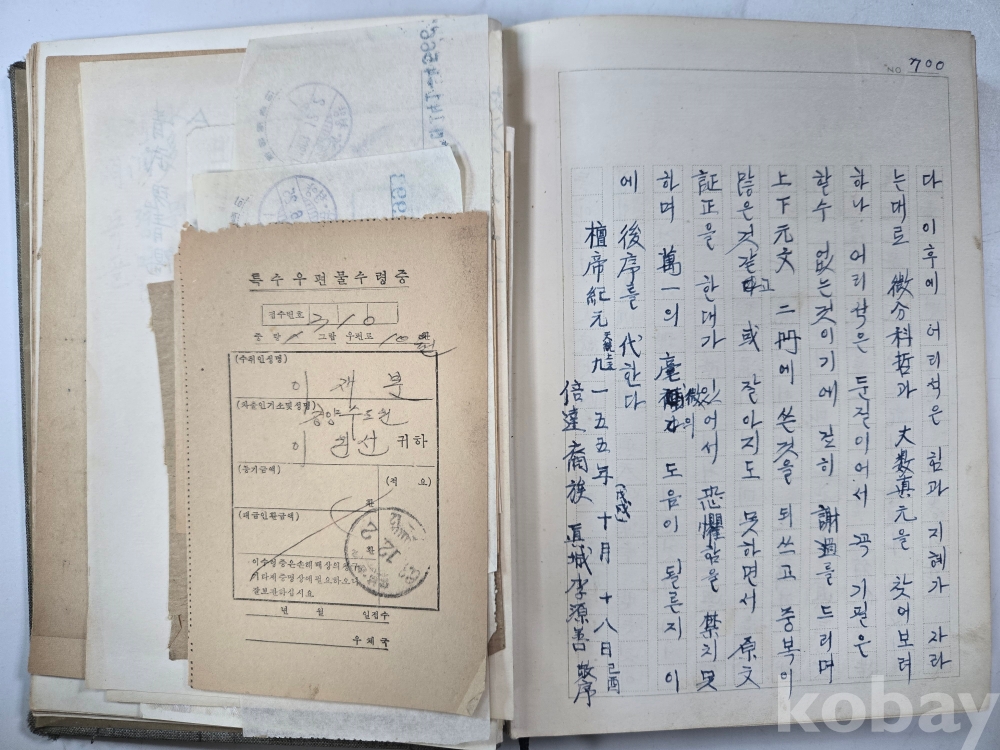 특수우편물수령증
접수번호 310
중량 그람 우편료 10환
(수취인성명)
이재분
(차출인기소및성명)
중앙수도원
이원선 귀하
(등기금액)
환
(적 요)
(대금인환금액)
환
이수령증은손해배상의청구
기타제증명상에필요하오니
잘보관하십시요
년 월 일접수
우체국
NO. 700
다 이후에 어리석은 힘과 지혜가 자라
는대로 微分科哲과 大数真元을 찾어보려
하나 어리착은 둔질이어서 꼭 기필은
할수 없는것이기에 깊히 謝過를 드리며
上下元文 二冊에 쓴것을 되쓰고 중복이
많은것같고 或 잘아지도 못하면서 原文
証正을 한대가 있어서 恐懼함을 禁치못
하며 萬一의 毫微의 도움이 될른지 이
에 後序를 代한다
檀帝紀元 九一五五年(戊戌) 十月 十八日 己酉
倍達裔族 真城李源善 敬序
kobay